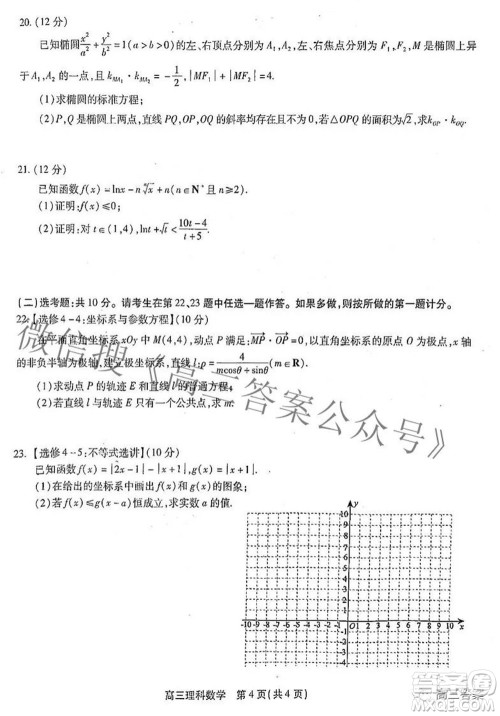 20.(12分)
已知椭圆x²/a²+y²/b²=1(a>b>0)的左、右顶点分别为A₁,A₂,左、右焦点分别为F₁,F₂,M是椭圆上异
于A₁,A₂的一点,且k_{MA₁}·k_{MA₂}=-1/2,|MF₁|+|MF₂|=4.
(1)求椭圆的标准方程;
(2)P,Q是椭圆上两点,直线PQ,OP,OQ的斜率均存在且不为0,若△OPQ的面积为√2,求k_{OP}·k_{OQ}.
21.(12分)
已知函数f(x)=lnx-n ⁿ√x+n(n∈N*且n≥2).
(1)证明:f(x)≤0;
(2)证明:对t∈(1,4),lnt+√t<(10t-4)/(t+5).
(二)选考题:共10分。请考生在第22、23题中任选一题作答。如果多做,则按所做的第一题计分。
22.【选修4-4:坐标系与参数方程】(10分)
在平面直角坐标系xOy中M(4,4),动点P满足:MP·OP=0,以直角坐标系的原点O为极点,x轴
的非负半轴为极轴,建立极坐标系,直线l:ρ=4/(mcosθ+sinθ)(m∈R).
(1)求动点P的轨迹E和直线l的普通方程;
(2)若直线l与轨迹E只有一个公共点,求m.
23.【选修4-5:不等式选讲】(10分)
已知函数f(x)=|2x-1|-|x+1|,g(x)=|x+1|.
(1)在给出的坐标系中画出f(x)和g(x)的图象;
(2)若f(x)≤g(x-a)恒成立,求实数a的值.
y
10
9
8
7
6
5
4
3
2
1
-10 -9 -8 -7 -6 -5 -4 -3 -2 -1 O 1 2 3 4 5 6 7 8 9 10 x
高三理科数学 第4页(共4页)
微信搜《高三答案公众号》
高三答案